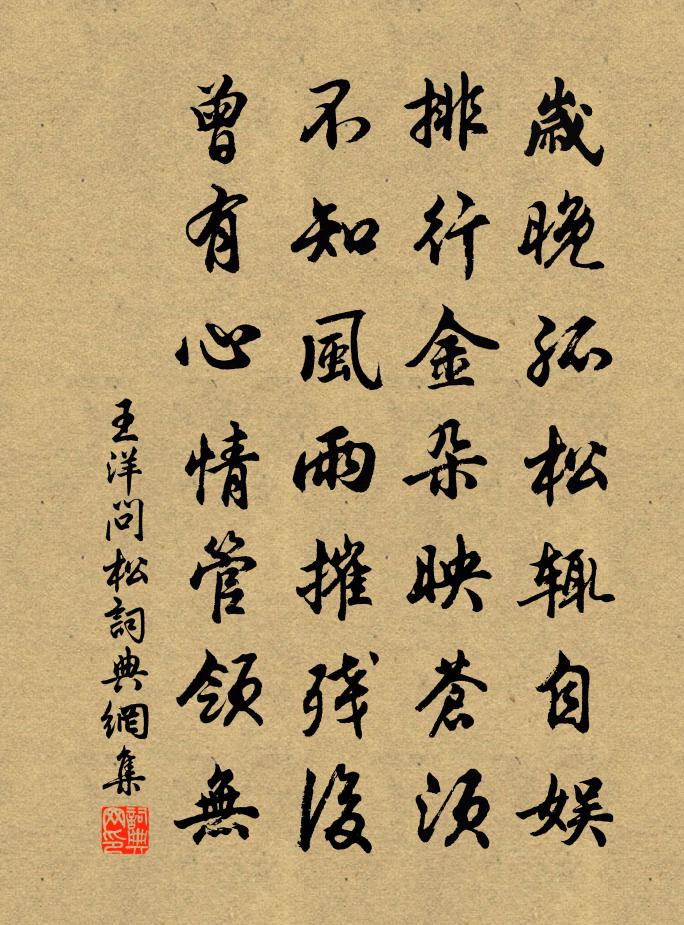 歲晚孤松輒自娛
排行金朵映蒼須
不知風雨摧残後
曾有心情管領無
王洋問松詞典網集
詞典網印